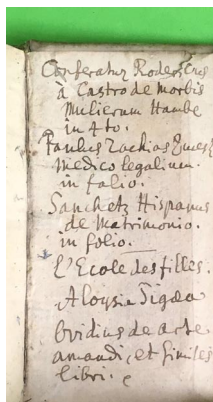 Conferatur Rodericus
à Castro de morbis
Mulierum Hambe
in 4to.
Paulus Zachias Quest
Medico legalium.
in folio.
Sanchetz Hispanus
de Matrimonio.
in folio.
L'Ecole des filles.
Aloysia Sigæa
Ovidius de arte
amandi, et similes
libri.